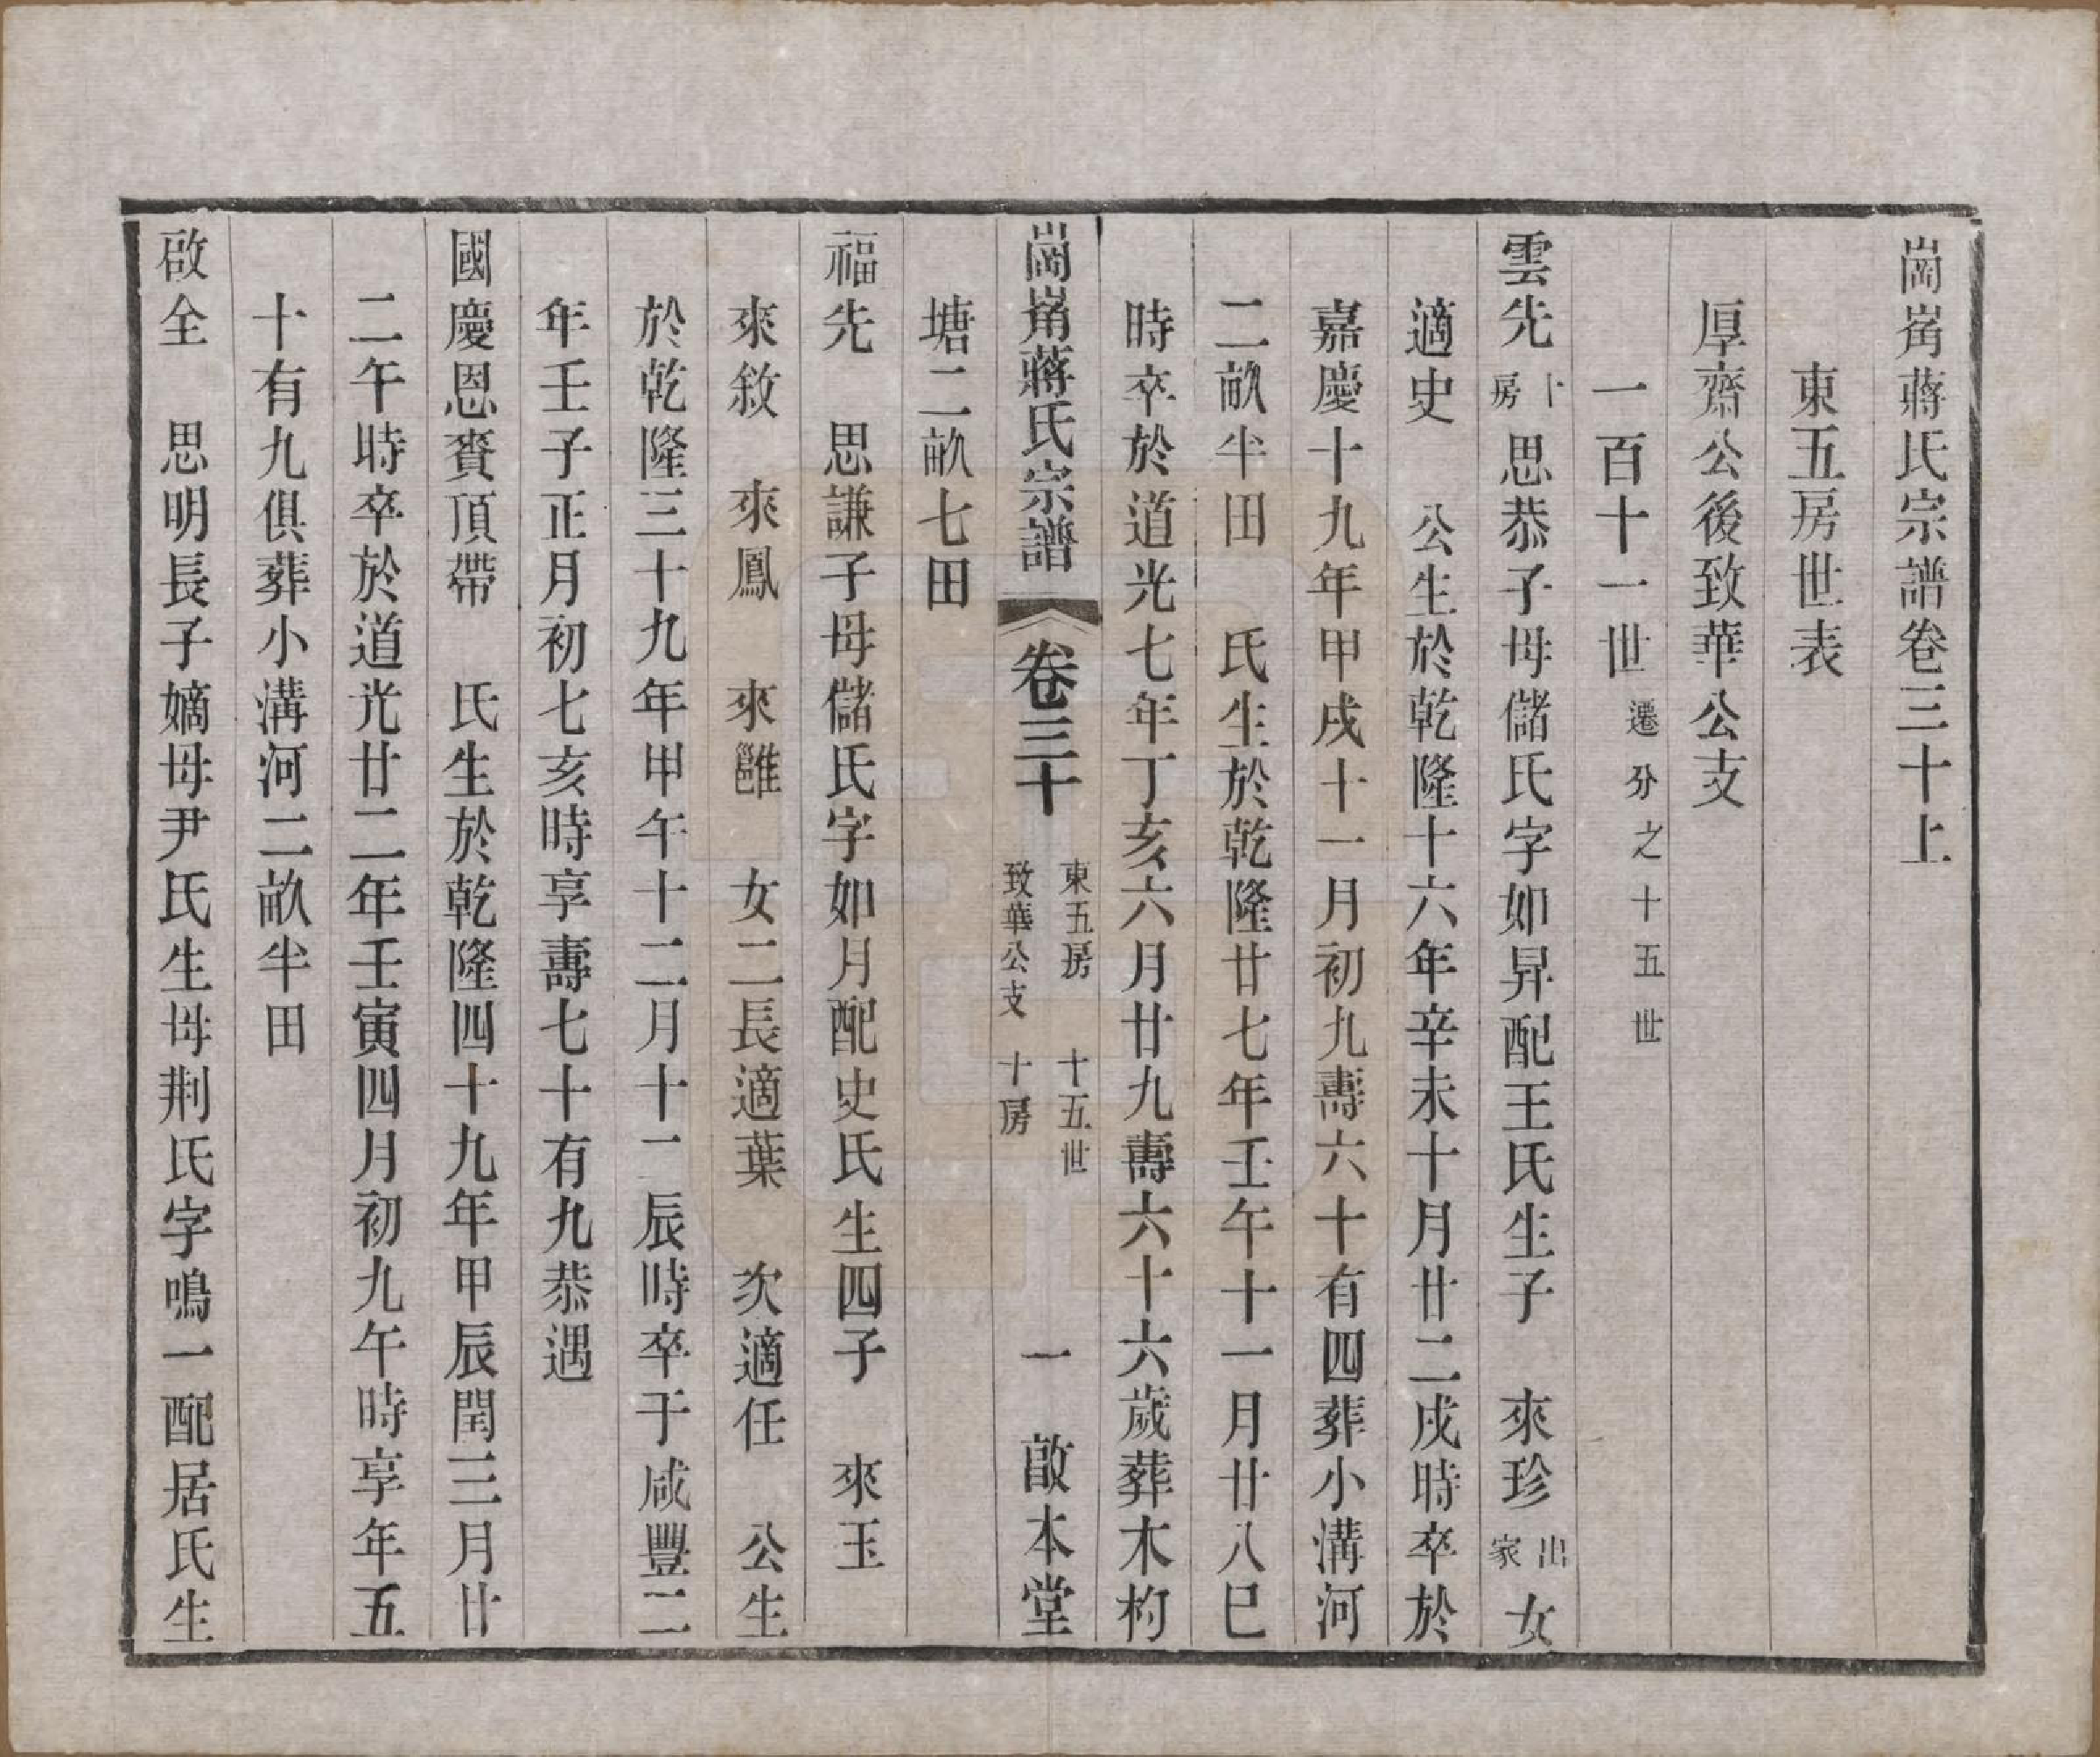 崗崗蔣氏宗譜卷三十上
東五房世表
厚齋公後致華公支
一百十一世遷分之十五世
雲先十房思恭子母儲氏字如昇配王氏生子　來珍出家女
適史　公生於乾隆十六年辛未十月廿二戌時卒於
嘉慶十九年甲戌十一月初九壽六十有四葬小溝河
二畝半田　氏生於乾隆廿七年壬午十一月廿八巳
時卒於道光七年丁亥六月廿九壽六十六歲葬木杓
崗崗蔣氏宗譜　卷三十　東五房　十五世　致華公支　十房　一　啟本堂
塘二畝七田
福先　思謙子母儲氏字如月配史氏生四子　來玉
來敘　來鳳　來雝　女二長適葉　次適任　公生
於乾隆三十九年甲午十二月十一辰時卒于咸豐二
年壬子正月初七亥時享壽七十有九恭遇
國慶恩賚頂帶　氏生於乾隆四十九年甲辰閏三月廿
二午時卒於道光廿二年壬寅四月初九午時享年五
十有九俱葬小溝河二畝半田
啟全　思明長子嫡母尹氏生母荆氏字鳴一配居氏生